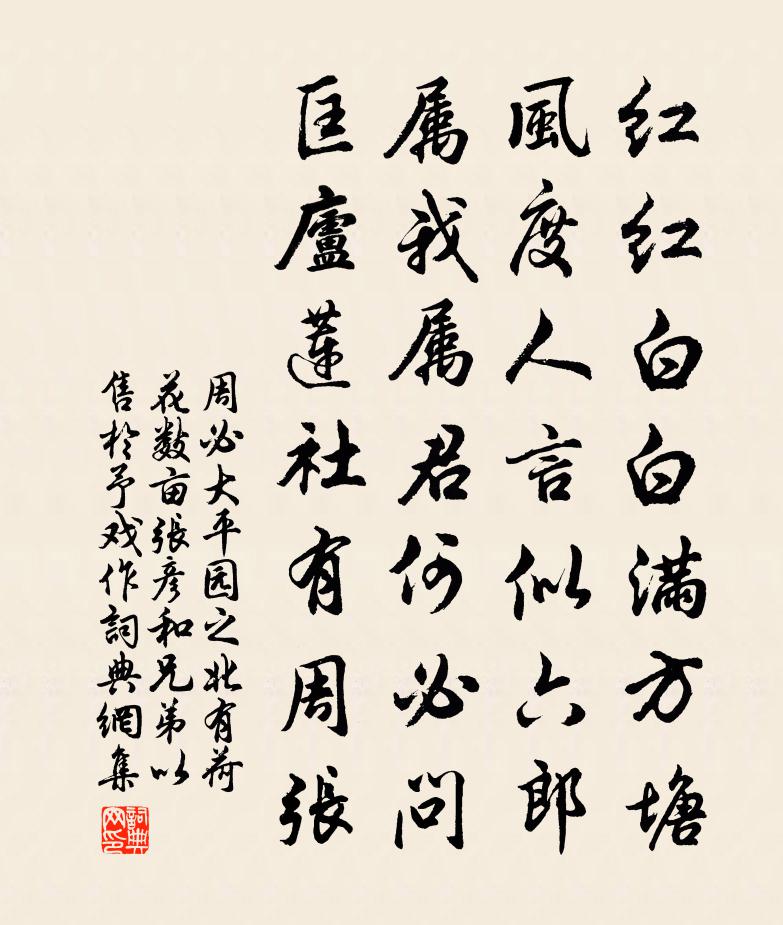 红红白白满方塘
風度人言似六郎
属我属君何必問
匡廬蓮社有周張
周必大平园之北有荷
花数亩張彦和兄弟以
售於予戏作詞典網集
詞典
网印